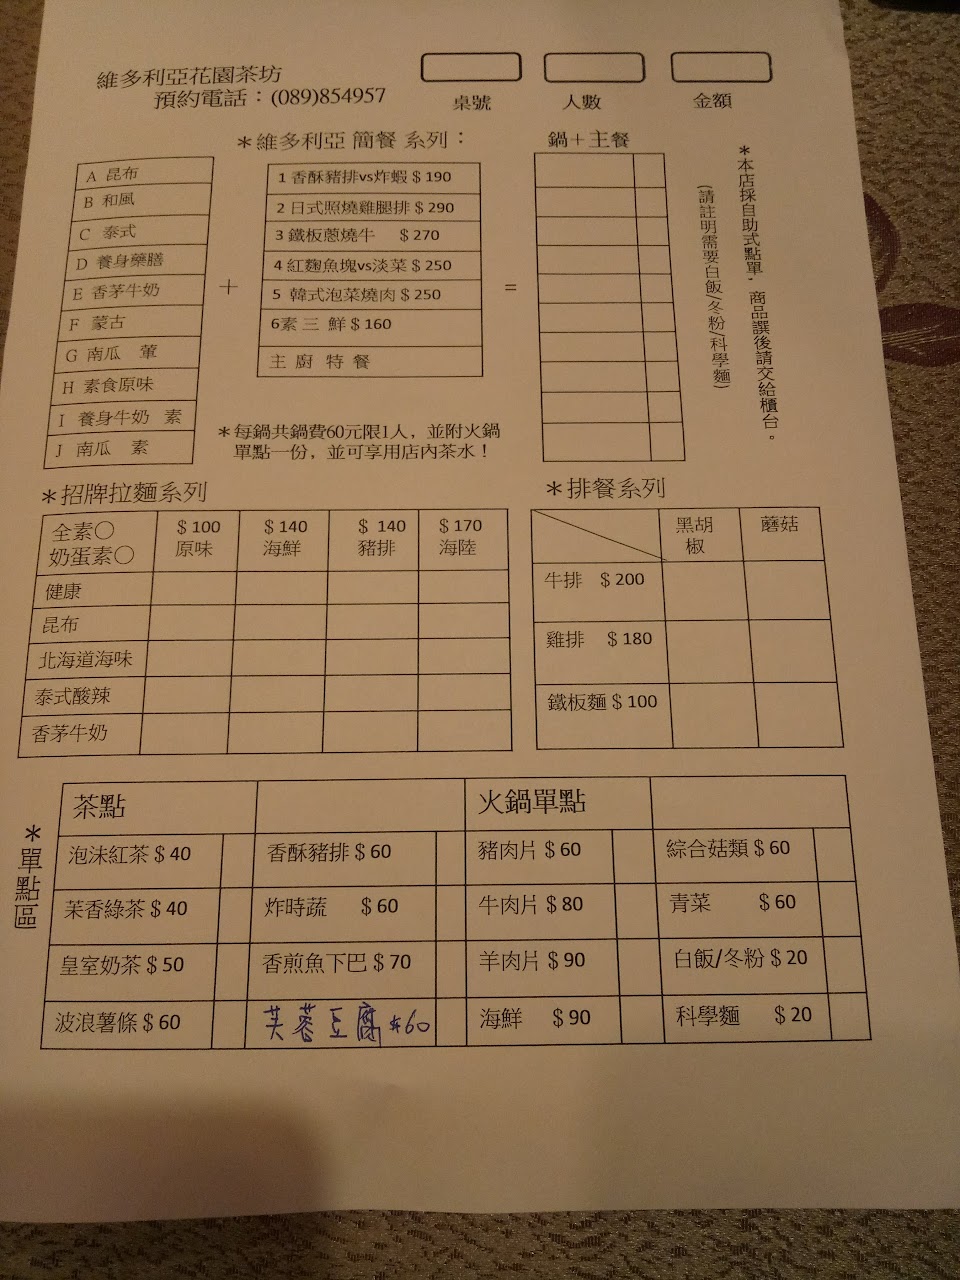 維多利亞花園茶坊
預約電話：(089)854957
桌號
人數
金額
＊維多利亞 簡餐 系列：
鍋＋主餐
A 昆布
B 和風
C 泰式
D 養身藥膳
E 香茅牛奶
F 蒙古
G 南瓜 葷
H 素食原味
I 養身牛奶 素
J 南瓜 素
＋
1 香酥豬排vs炸蝦＄190
2 日式照燒雞腿排＄290
3 鐵板蔥燒牛 ＄270
4 紅麴魚塊vs淡菜＄250
5 韓式泡菜燒肉＄250
6素 三 鮮＄160
主 廚 特 餐
＝
(請註明需要白飯/冬粉/科學麵)
＊本店採自助式點單，商品譔後請交給櫃台。
＊每鍋共鍋費60元限1人，並附火鍋
單點一份，並可享用店內茶水！
＊招牌拉麵系列
全素〇
奶蛋素〇
＄100 原味
＄140 海鮮
＄ 140 豬排
＄170 海陸
健康
昆布
北海道海味
泰式酸辣
香茅牛奶
＊排餐系列
黑胡
椒
蘑菇
牛排 ＄200
雞排 ＄180
鐵板麵＄100
＊單點區
茶點
火鍋單點
泡沫紅茶＄40
香酥豬排＄60
豬肉片＄60
綜合菇類＄60
茉香綠茶＄40
炸時蔬 ＄60
牛肉片＄80
青菜 ＄60
皇室奶茶＄50
香煎魚下巴＄70
羊肉片＄90
白飯/冬粉＄20
波浪薯條＄60
芙蓉豆腐 $60
海鮮 ＄90
科學麵 ＄20